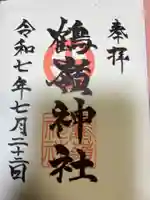 奉拝
鶴嶺神社
令和七年七月二十二日